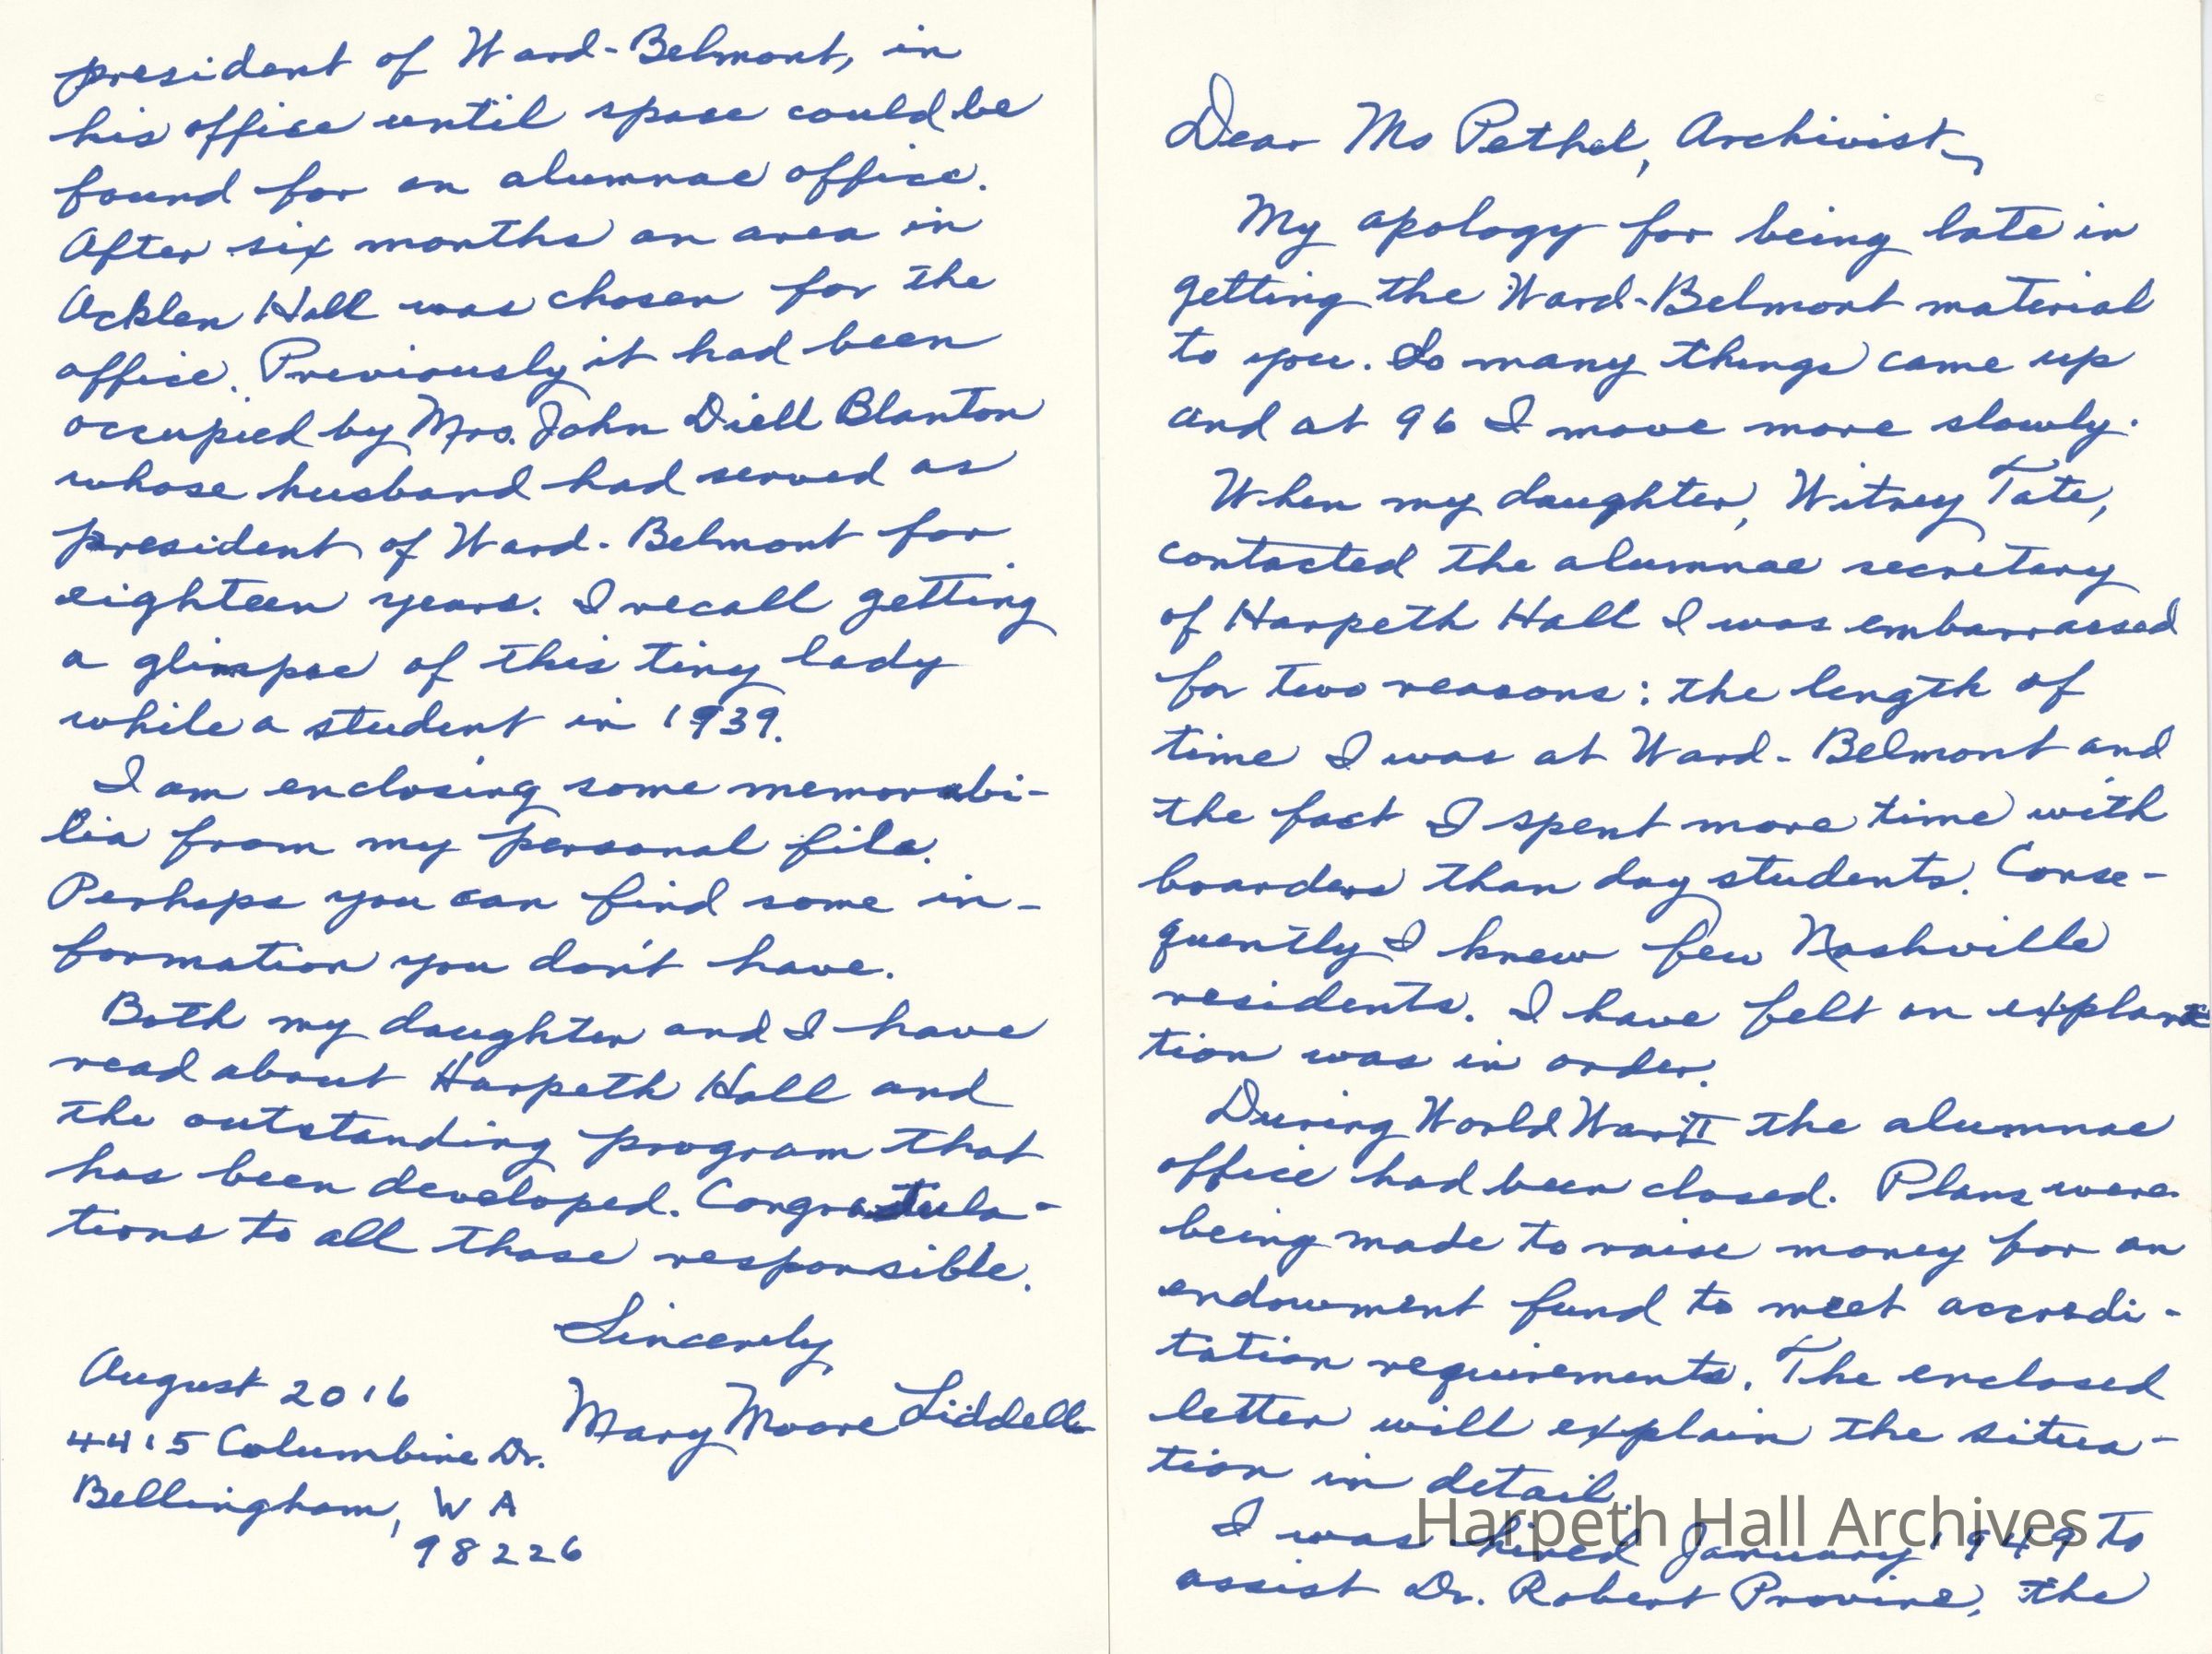 Dear Ms Pethel, Archivist,
My apology for being late in
getting the Ward-Belmont material
to you. So many things came up
and at 96 I move more slowly.
When my daughter, Witney Tate,
contacted the alumnae secretary
of Harpeth Hall I was embarrassed
for two reasons: the length of
time I was at Ward-Belmont and
the fact I spent more time with
boarders than day students. Conse-
quently I knew few Nashville
residents. I have felt an explana
tion was in order.
During World War II the alumnae
office had been closed. Plans were
being made to raise money for an
endowment fund to meet accredi-
tation requirements. The enclosed
letter will explain the situa-
tion in detail.
I was hired January 1949 to
assist Dr. Robert Provine, the
Harpeth Hall Archives
president of Ward-Belmont, in
his office until space could be
found for an alumnae office.
After six months an area in
Acklen Hall was chosen for the
office. Previously it had been
occupied by Mrs. John Diell Blanton
whose husband had served as
president of Ward-Belmont for
eighteen years. I recall getting
a glimpse of this tiny lady
while a student in 1939.
I am enclosing some memorabi-
lia from my personal file.
Perhaps you can find some in-
formation you don't have.
Both my daughter and I have
read about Harpeth Hall and
the outstanding program that
has been developed. Congratula-
tions to all those responsible.
Sincerely,
Mary Moore Liddell
August 2016
4415 Columbine Dr.
Bellingham, WA
98226